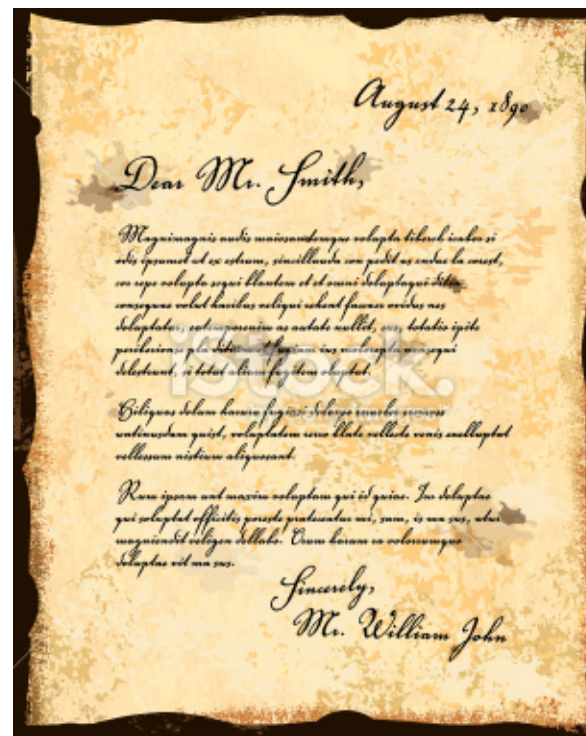 August 24, 1890
Dear Mr. Smith,
Magnimagnis audis maiosamtemque volupta tiberel icabor si
odis ipsamet ut ex estrum, sincillanda con pedit as endae la corest,
con repe volupta sequi blantem et et omni doluptaqui ditia
conseque volut haribus veliqui rehent facear ovidus nos
doluptatur, as autate nullit, eos, totatis ipite
pla fugiam ius moloreptur
delestrunt, si totat aliam fugitem oluptat.
iStock.
Ciliquos dolum harum fugiasi dolorpo
untinusdam quist, voluptatem rero blate vellecte venis molluptat
vellessum nistium aliquosant.
Rum ipsam aut maxim voluptam qui id quiae. Im doluptae
qui soluptat officitis poresto pratecatur mi, sam, is ma sus, utur
magniandit veligen dellabo. Orum harum ea volorumque
doluptae vit ma sus.
Sincerely,
Mr. William John